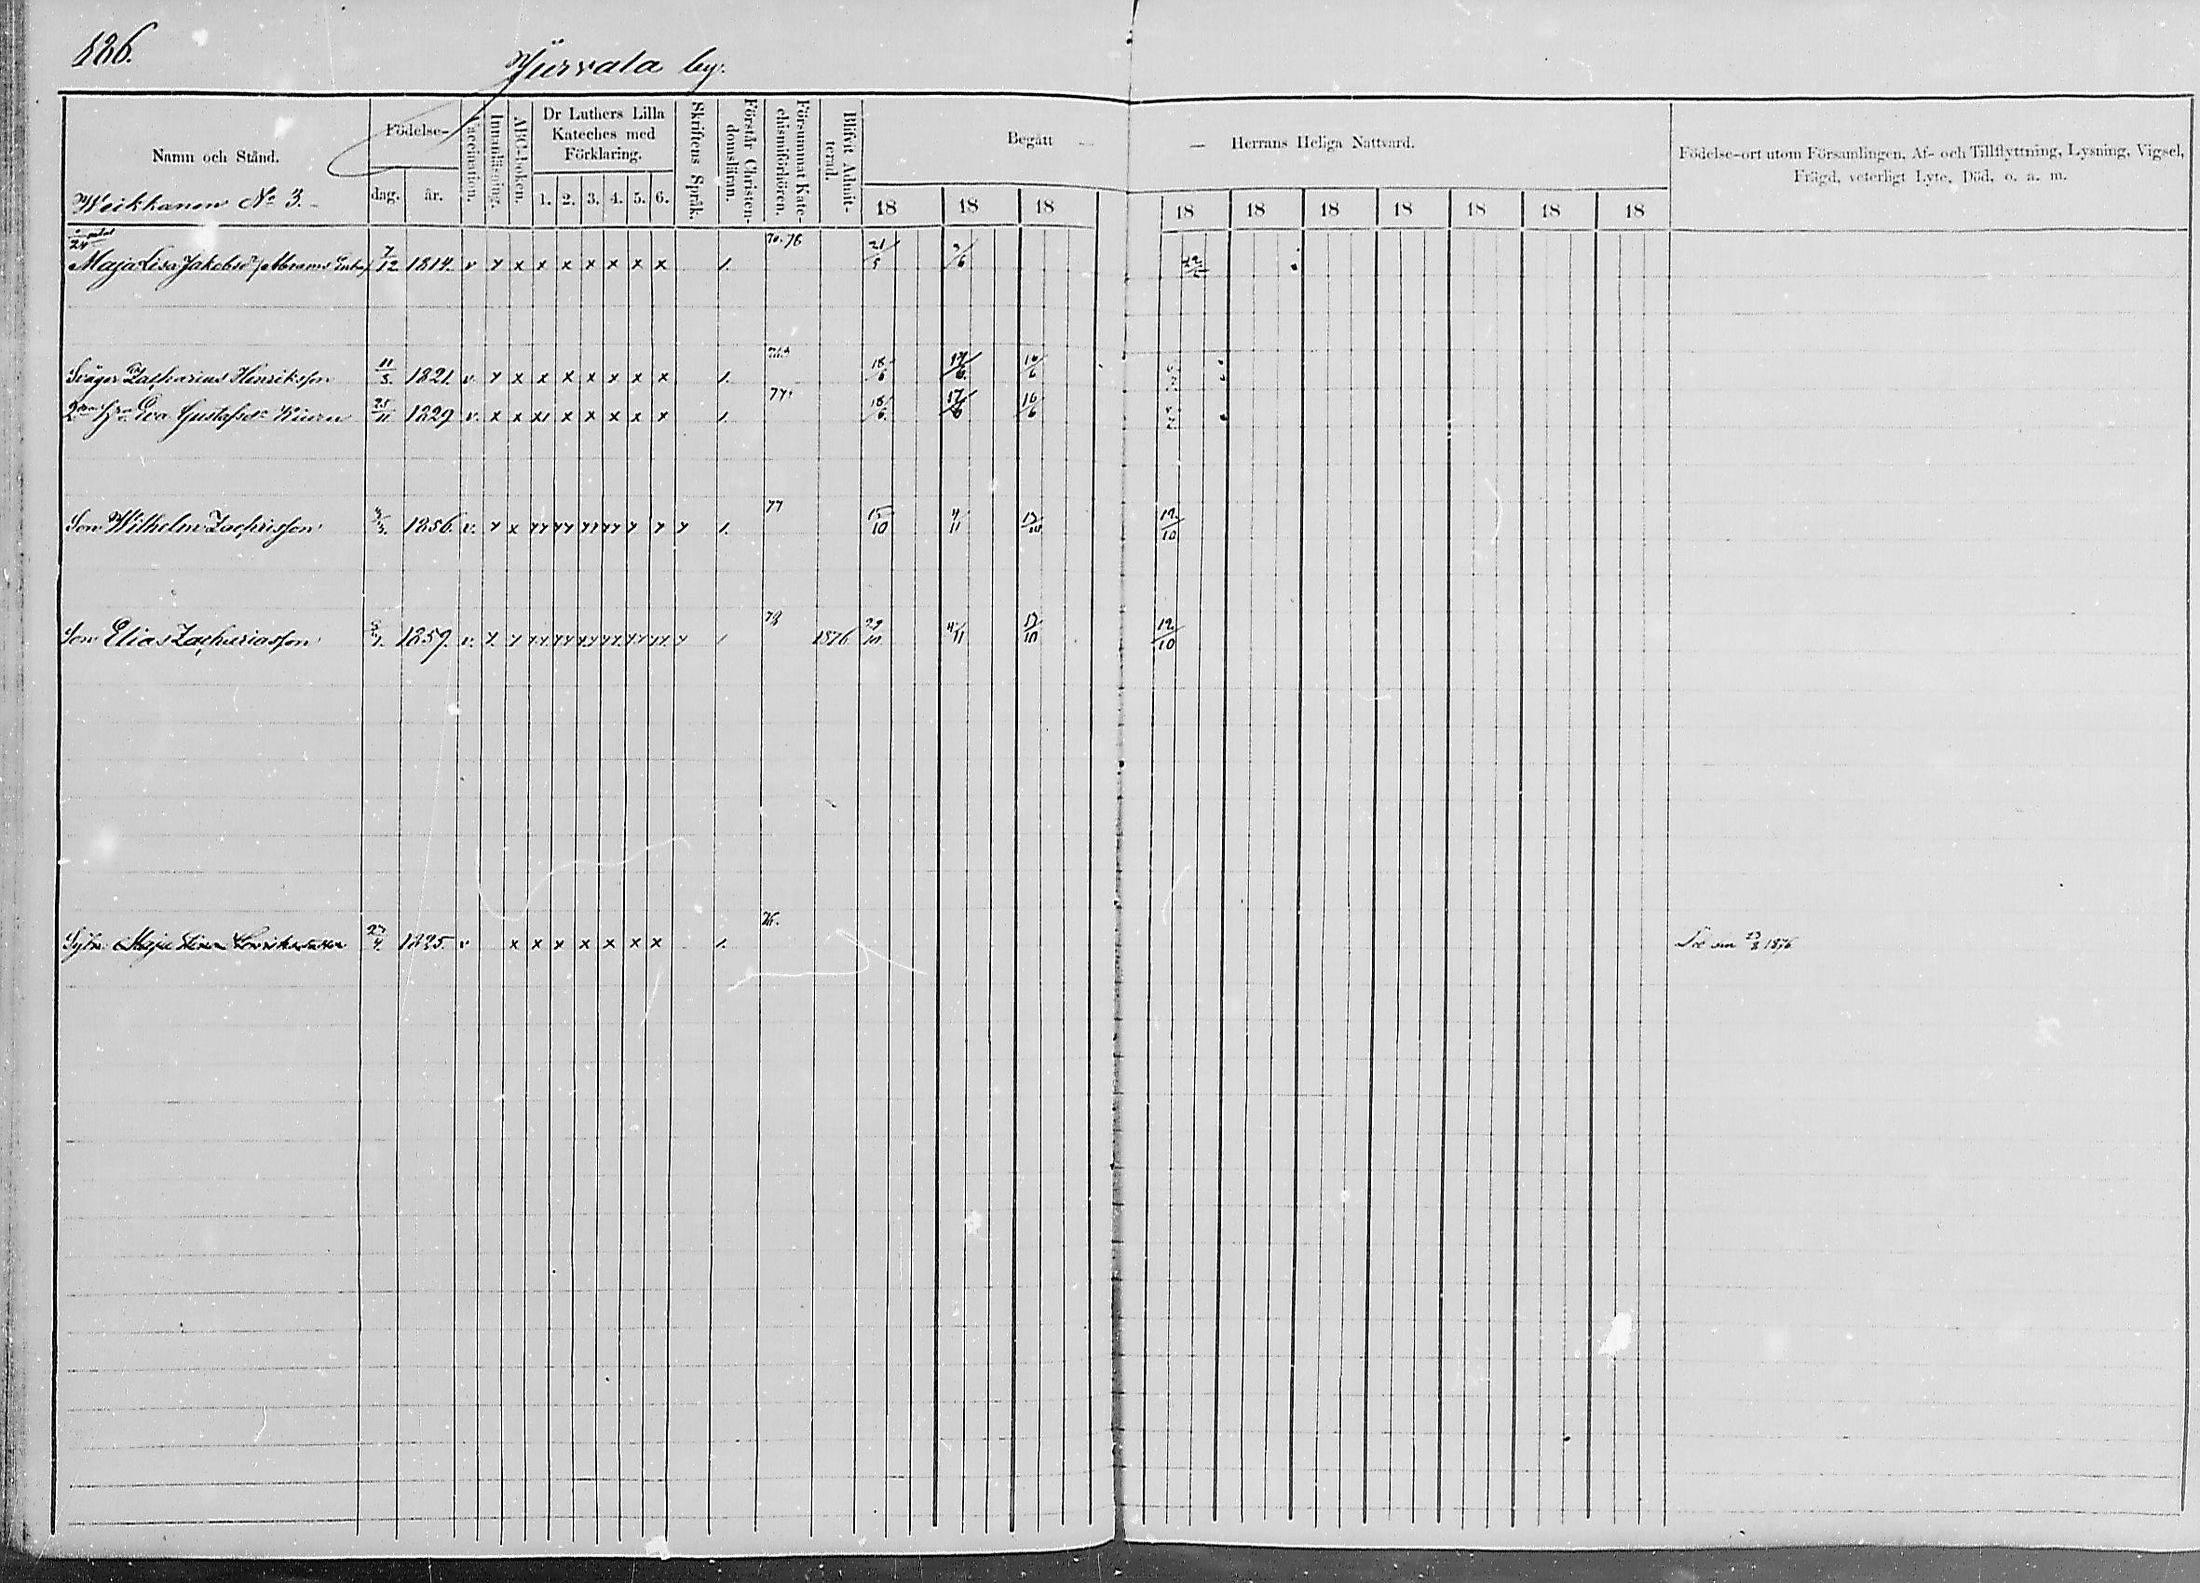 126.
Järvala by.
Namn och Stånd. Födelse- dag. år. Vaccination. Innanläsning. ABC-boken. Dr Luthers Lilla Kateches med Förklaring. 1. 2. 3. 4. 5. 6. Skriftens Språk. Förstår Christen-domsläran. Försummat Kate-chismiförhören. Blifvit Admit-terad. Begått — — Herrans Heliga Nattvard. Födelse-ort utom Församlingen, Af- och Tillflyttning, Lysning, Vigsel, Frägd, veterligt Lyte, Död, o. a. m.
18 18 18 18 18 18 18 18 18 18
Weikkanen No 3.
1/24 mtal
Maja Lisa Jakobsdr Abrams Enka 7/12 1814. v x x x x x x x x 1. 70. 76 21/5 2/6
Svåger Zacharias Henriksson 11/3. 1821. v x x x x x x x x 1. 18/6 17/6. 16/6
2dra h. Eva Gustafsdr 25/11 1829 v. x x x x x x x x 1. 77 18/6. 17/6 16/6
Son Wilhelm Zachrisson 1856. v. x 1. 77 15/10 4/11 13/10 12/10
Son Elias Zachariasson 1859. v. 78 1876 29/10 4/11 13/10 12/10
Sytn. Maja Stina Henriksdotter 27/4. 1825. v x x x x x x x 1. 76. Död den 23/8 1876